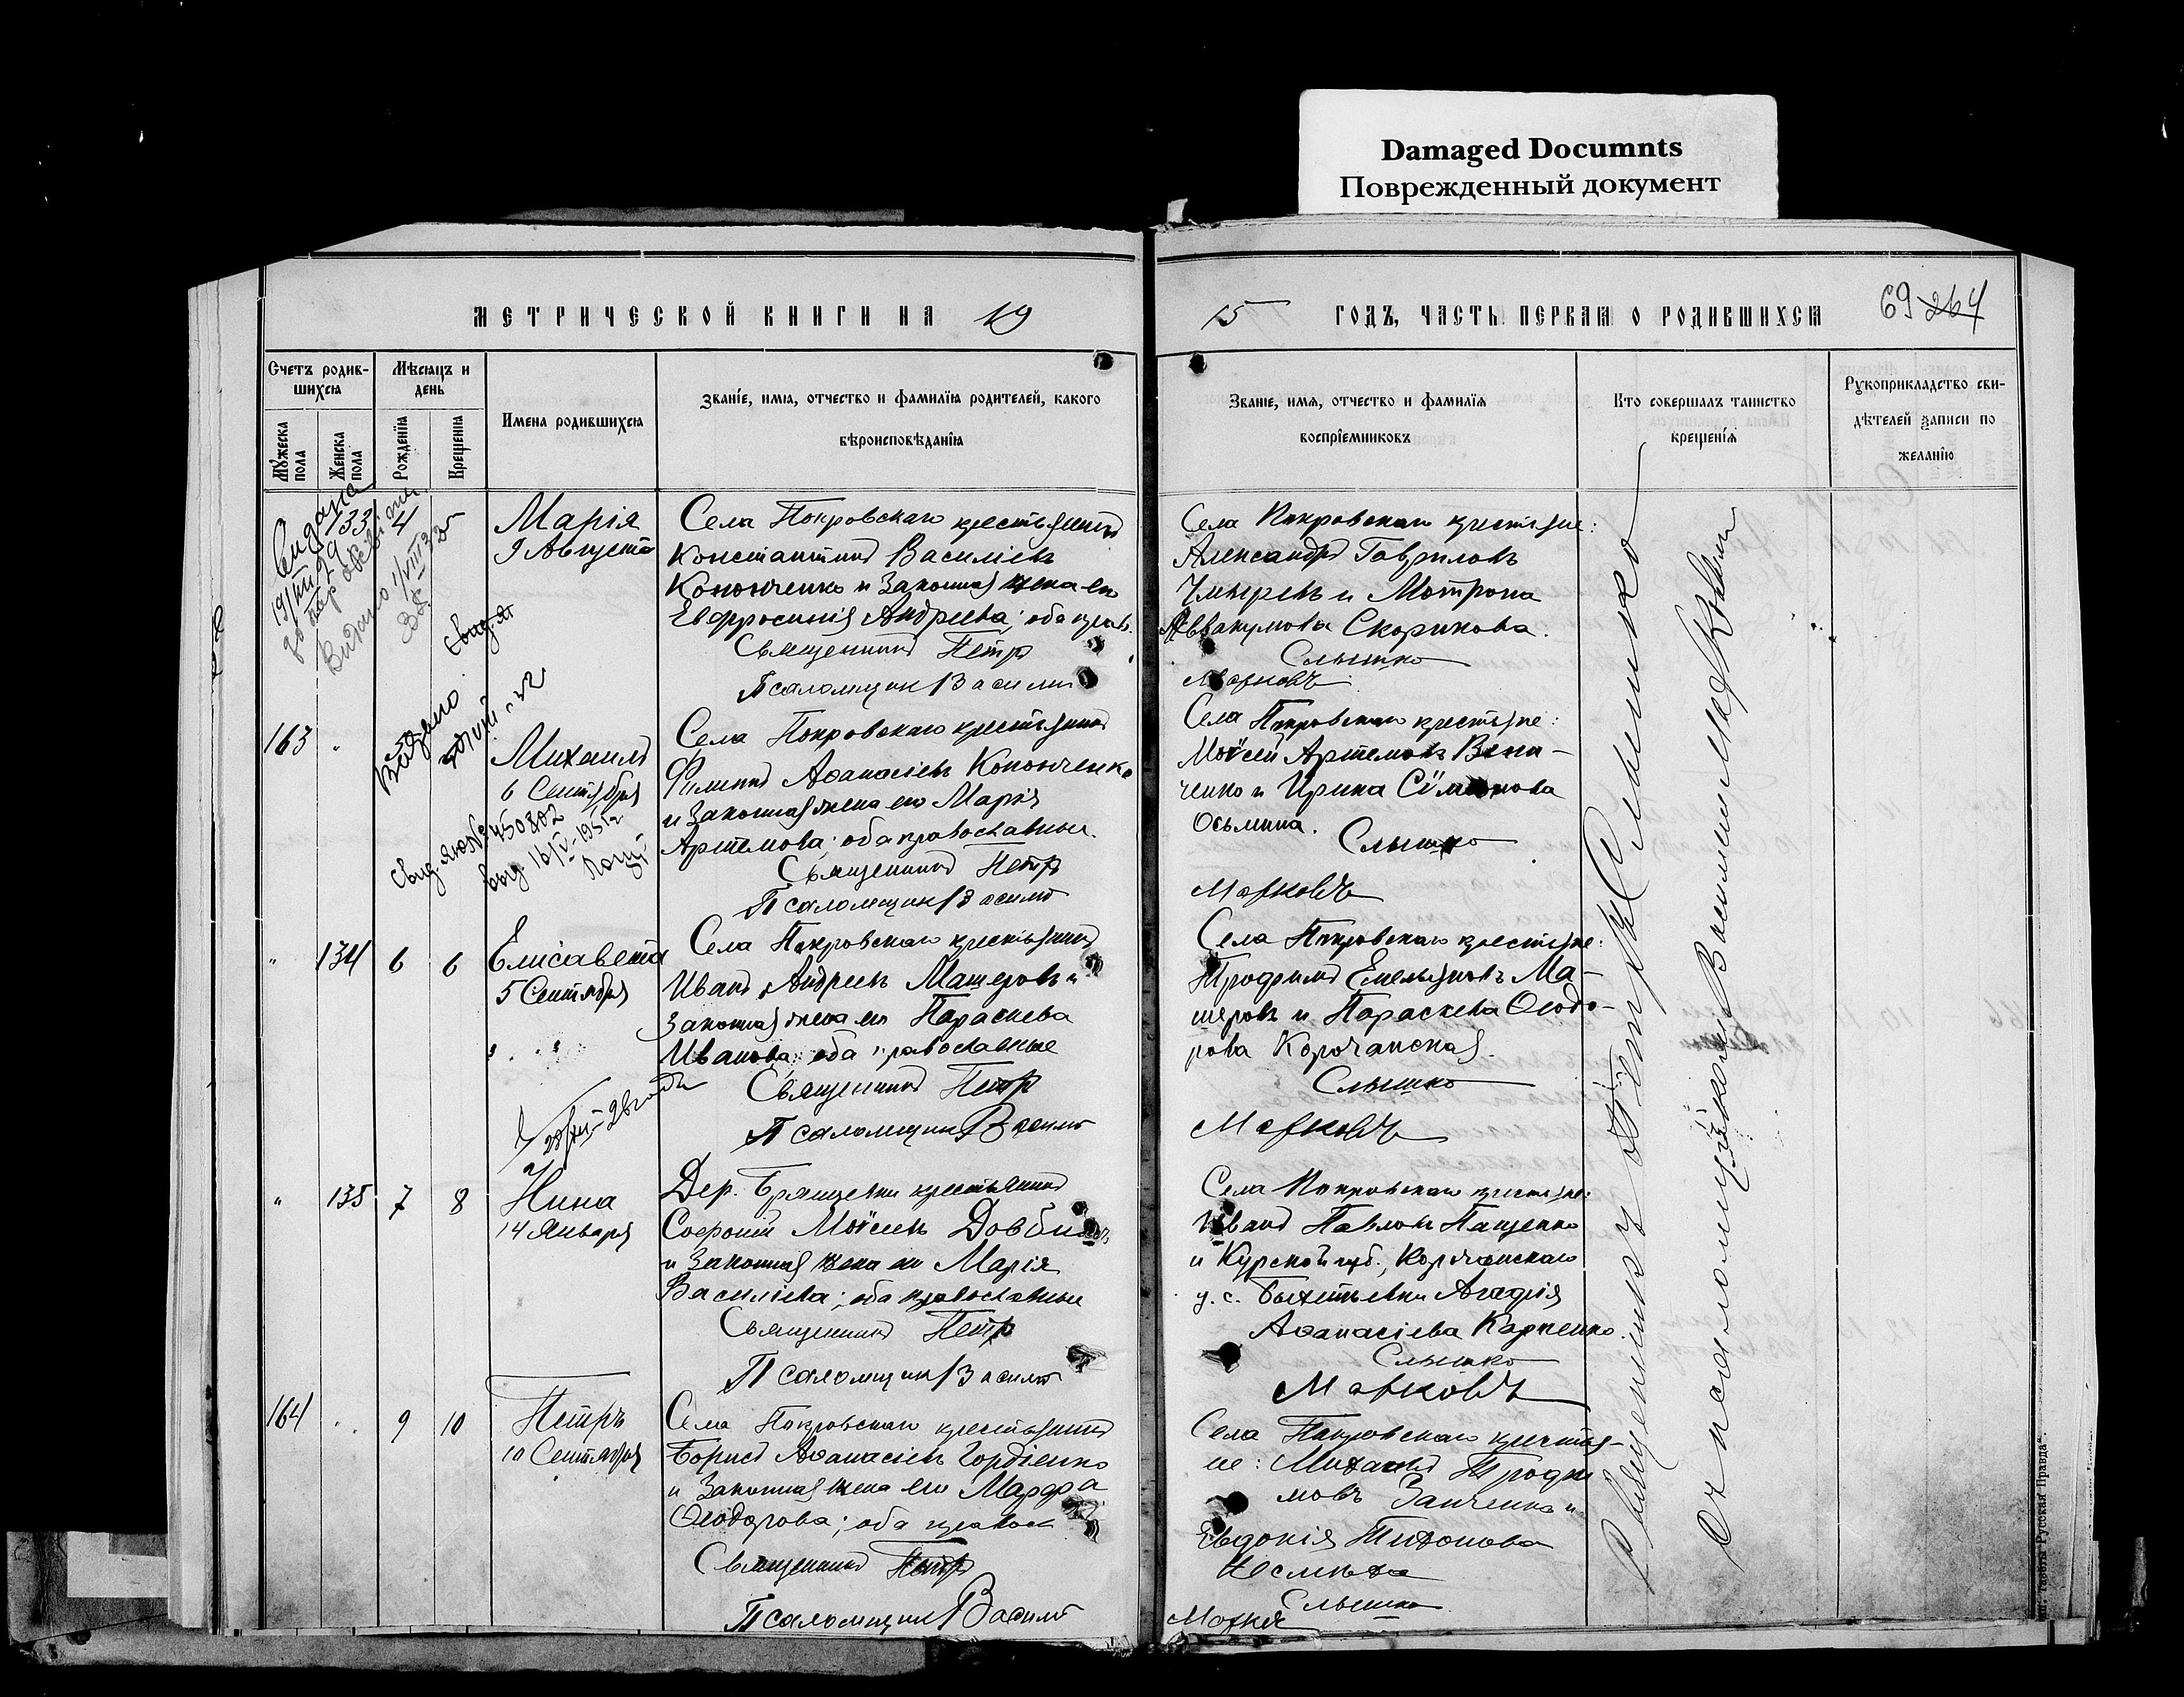 Damaged Documnts
Поврежденный документ
МЕТРИЧЕСКОЙ КНИГИ НА 19
15 ГОДЪ, ЧАСТЬ ПЕРВАЯ О РОДИВШИХСЯ
69 264
Счетъ родив-
шихся
Мужеска пола
Женска пола
Мѣсяцъ и
день
Рожденія
Крещенія
Имена родившихся
Званіе, имя, отчество и фамилія родителей, какого
вѣроисповѣданія
Званіе, имя, отчество и фамилія
воспріемниковъ
Кто совершалъ таинство
крещенія
Рукоприкладство сви-
дѣтелей записи по
желанію
133 4
Марія
9 Августа
Села Покровскаго крестьянинъ
Константинъ Василіевъ
Кононченко и законная жена его
Евфросинія Андреева; оба прав.
Священникъ Петръ
Псаломщикъ Василій
Села Покровскаго крестьяне:
Александръ Гавриловъ
и Мотрона
Аввакумова Скорикова.
Слышко
Марковъ
163 "
Михаилъ
6 Сентября
Села Покровскаго крестьянинъ
Филиппъ Аѳанасіевъ Кононченко
и законная жена его Марія
Артемова; оба православные.
Священникъ Петръ
Псаломщикъ Василій
Села Покровскаго крестьяне:
Моѵсей Артемовъ
ченко и Ирина Сѵмонова
Осьмина.
Слышко
Марковъ
" 134 6 6
Елисавета
5 Сентября
Села Покровскаго крестьянинъ
Иванъ Андреевъ Машеровъ и
законная жена его Параскева
Иванова; оба православные
Священникъ Петръ
Псаломщикъ Василій
Села Покровскаго крестьяне:
Трофимъ Емельяновъ Ма-
шеровъ и Параскева Ѳеодо-
рова Корочанская.
Слышко
Марковъ
" 135 7 8
Нина
14 Января
Дер. крестьянинъ
Софроній Моѵсеевъ
и законная жена его Марія
Василіева; оба православные
Священникъ Петръ
Псаломщикъ Василій
Села Покровскаго крестьяне:
Иванъ Павловъ Пащенко
и Курской губ., Корочанскаго
у. с. Агафія
Аѳанасіева Карпенко.
Слышко
Марковъ
164 " 9 10
Петръ
10 Сентября
Села Покровскаго крестьянинъ
Борисъ Аѳанасіевъ Гордіенко
и законная жена его Марфа
Ѳеодорова; оба правосл
Священникъ Петръ
Псаломщикъ Василій
Села Покровскаго крестья-
не: Михаилъ Трофи
мовъ Заиченко и
Евдокія Тихонова
Слышко
Марковъ
Священникъ Петръ Слышко
Псаломщикъ Василій Марковъ